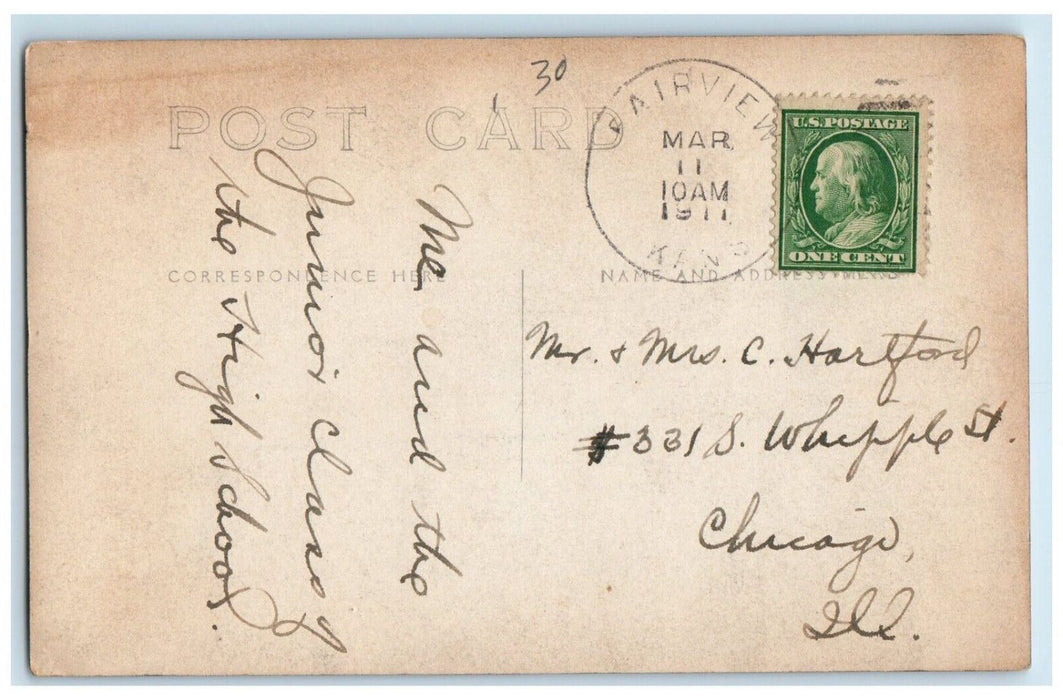 30
POST CARD
FAIRVIEW
MAR
11
10AM
1911
KANS
U.S. POSTAGE
ONE CENT
CORRESPONDENCE HERE
NAME AND ADDRESS HERE
Me and the
Junior Class of
the High School.
Mr. + Mrs. C. Hartford
#331 S. Whipple St.
Chicago,
Ill.